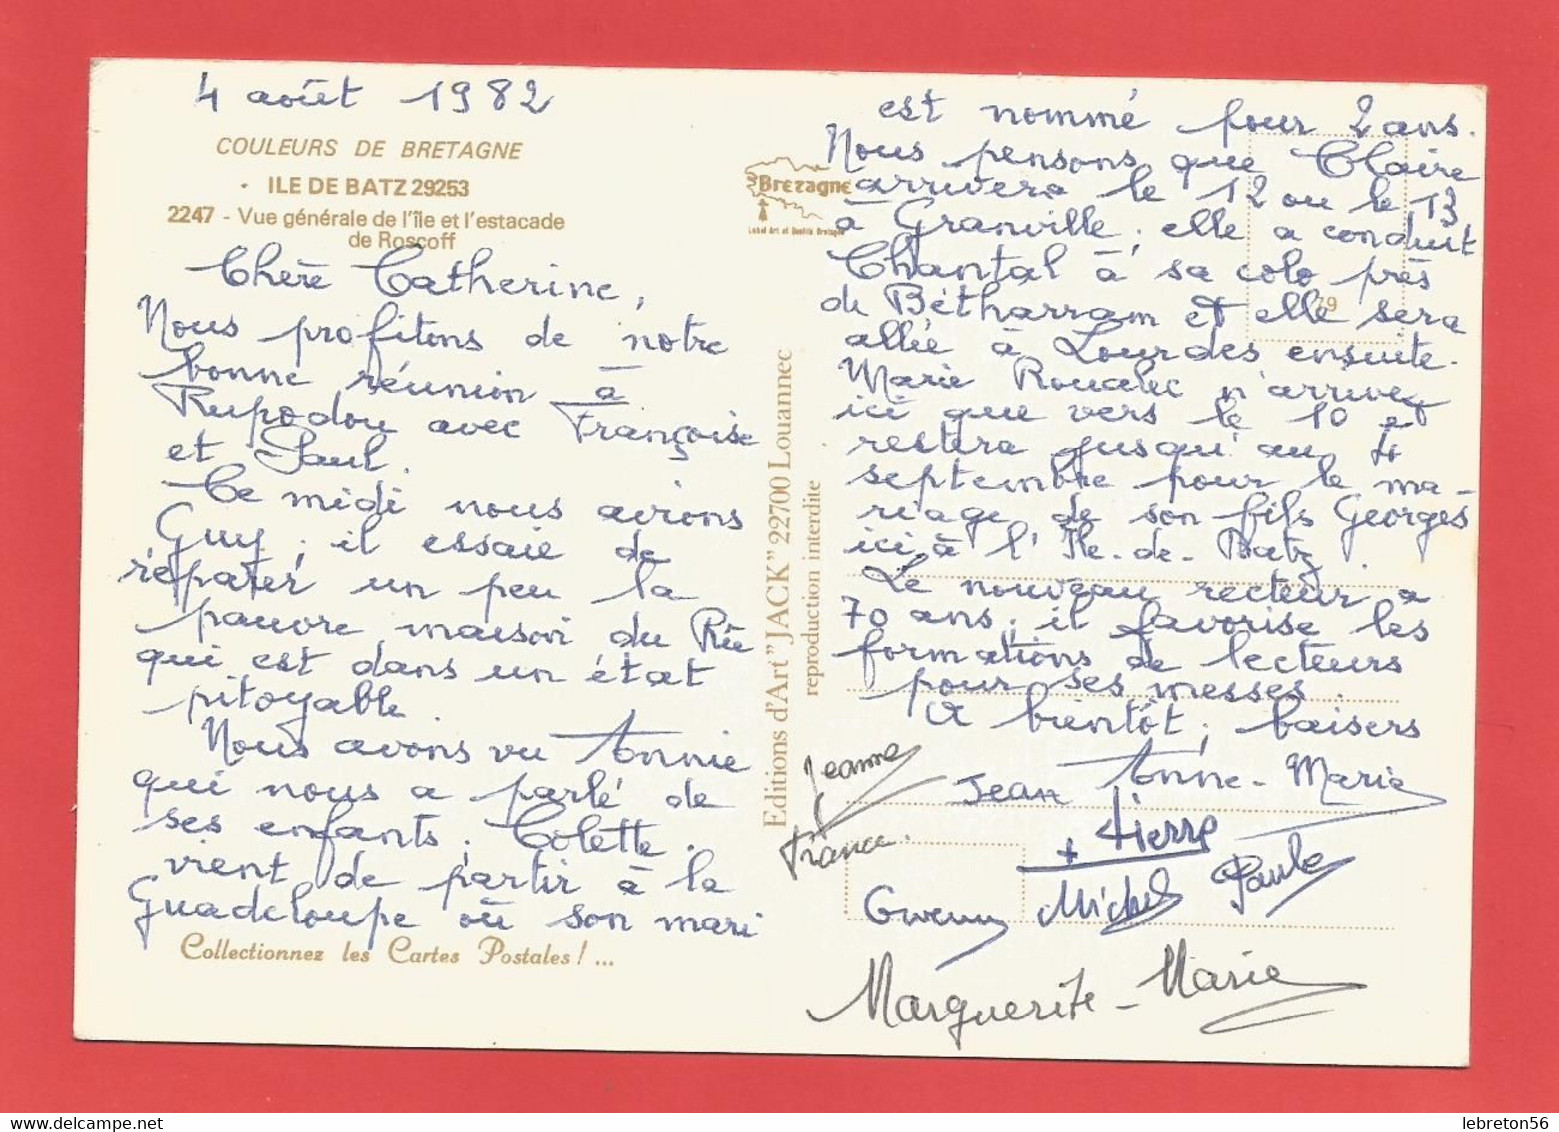 4 août 1982
COULEURS DE BRETAGNE
ILE DE BATZ 29253
2247 - Vue générale de l'île et l'estacade
de Roscoff
Chère Catherine,
Nous profitons de notre
bonne réunion à
Rupodou avec Françoise
et Paul.
Ce midi nous avions
Guy ; il essaie de
réparer un peu la
pauvre maison du Rû
qui est dans un état
pitoyable.
Nous avons vu Annie
qui nous a parlé de
ses enfants. Colette
vient de partir à la
Guadeloupe où son mari
Collectionnez les Cartes Postales ! ...
Editions d'Art "JACK" 22700 Louannec
reproduction interdite
Bretagne
Label Art et Qualité Bretagne
79
est nommé pour 2 ans.
Nous pensons que Claire
arrivera le 12 ou le 13
à Granville. elle a conduit
Chantal à sa colo près
de Bétharram et elle sera
allée à Lourdes ensuite.
Marie Roualec n'arrive
ici que vers le 10 et
restera jusqu'au 4
septembre pour le ma-
riage de son fils Georges
ici, à l'Ile-de-Batz.
Le nouveau recteur a
70 ans ; il favorise les
formations de lecteurs
pour ses messes.
A bientôt ; baisers
Jean Anne-Marie
Jeanne
France.
+ Pierre
Gwenn Michel Paule
Marguerite-Marie
lebreton56